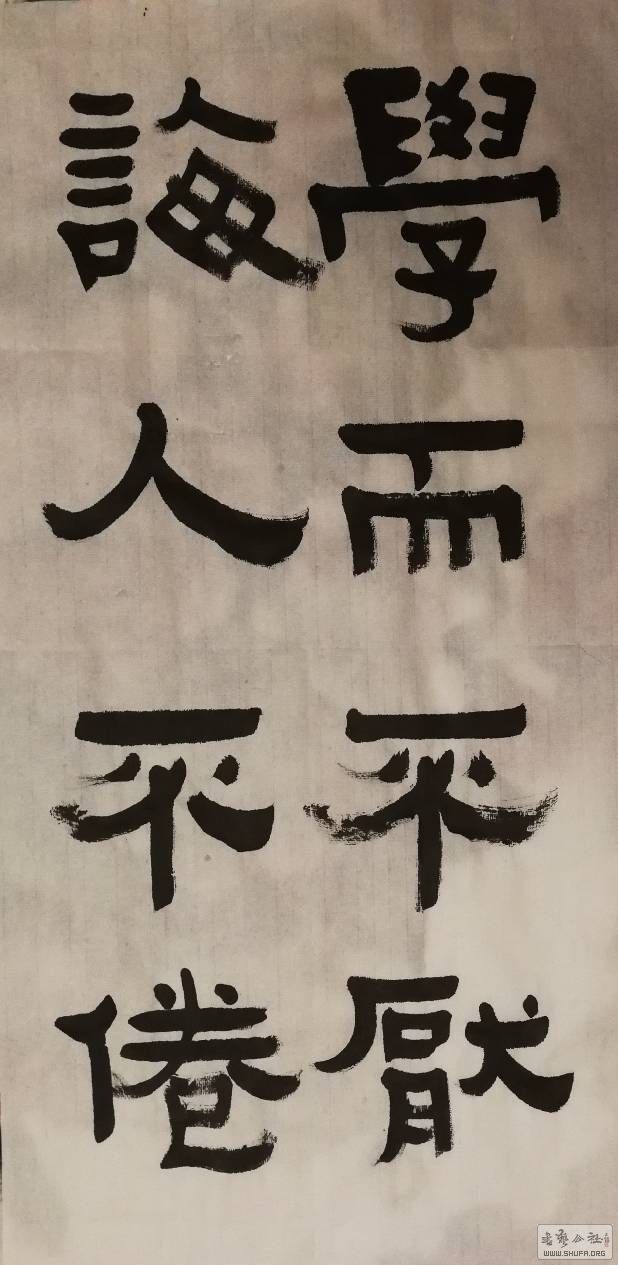 學而不厭
誨人不倦
書藝公社
WWW.SHUFA.ORG